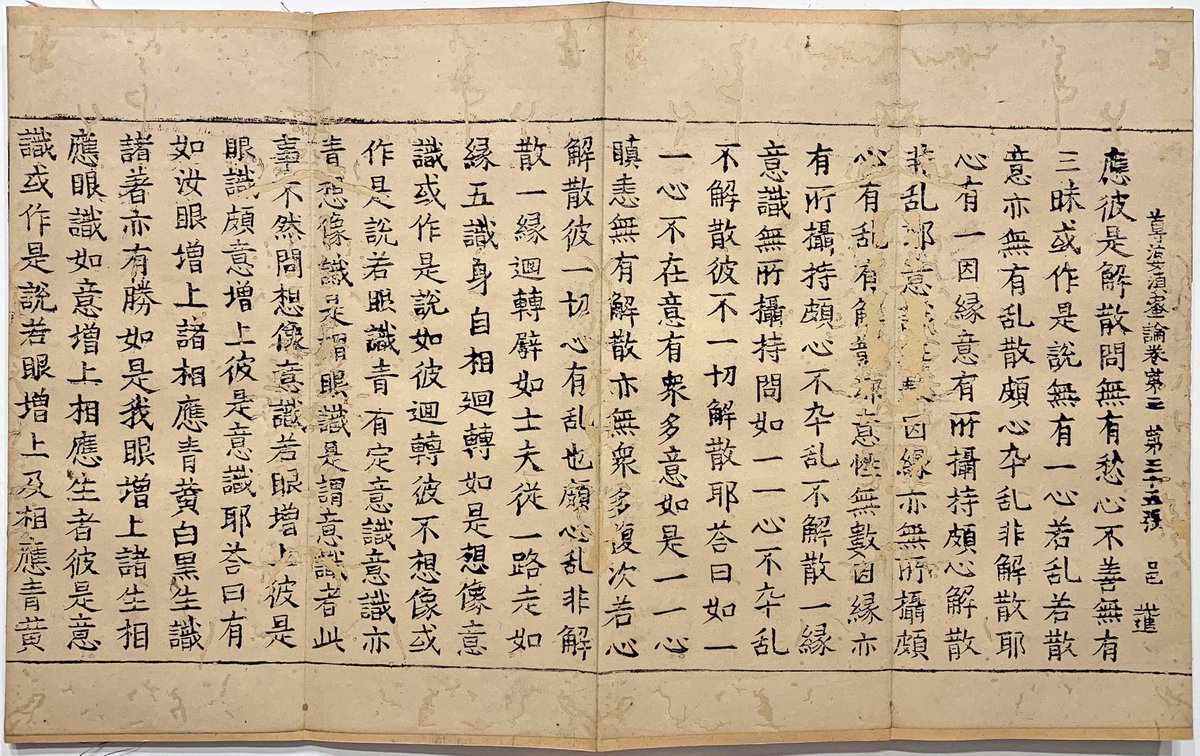 尊婆須蜜論卷第三 第三十五張 邑 進
應彼是解散問無有愁心不善無有
三昧或作是說無有一心若乱若散
意亦無有乱散頗心卆乱非解散耶
心有一因緣意有所攝持頗心解散
非乱耶意因緣亦無所攝頗
心有乱有解散耶意性無數因緣亦
有所攝持頗心不卆乱不解散一緣
意識無所攝持問如一一心不卆乱
不解散彼不一切解散耶荅曰如一
一心不在意有衆多意如是一一心
瞋恚無有解散亦無衆多復次若心
解散彼一切心有乱也頗心乱非解
散一緣迴轉辟如士夫從一路走如
緣五識身自相迴轉如是想像意
識或作是說如彼迴轉彼不想像或
作是說若眼識青有定意識意識亦
青想像識是謂眼識是謂意識者此
事不然問想像意識若眼增上彼是
眼識頗意增上彼是意識耶荅曰有
如汝眼增上諸相應青黃白黑生識
諸著亦有勝如是我眼增上諸生相
應眼識如意增上相應生者彼是意
識或作是說若眼增上及相應青黃